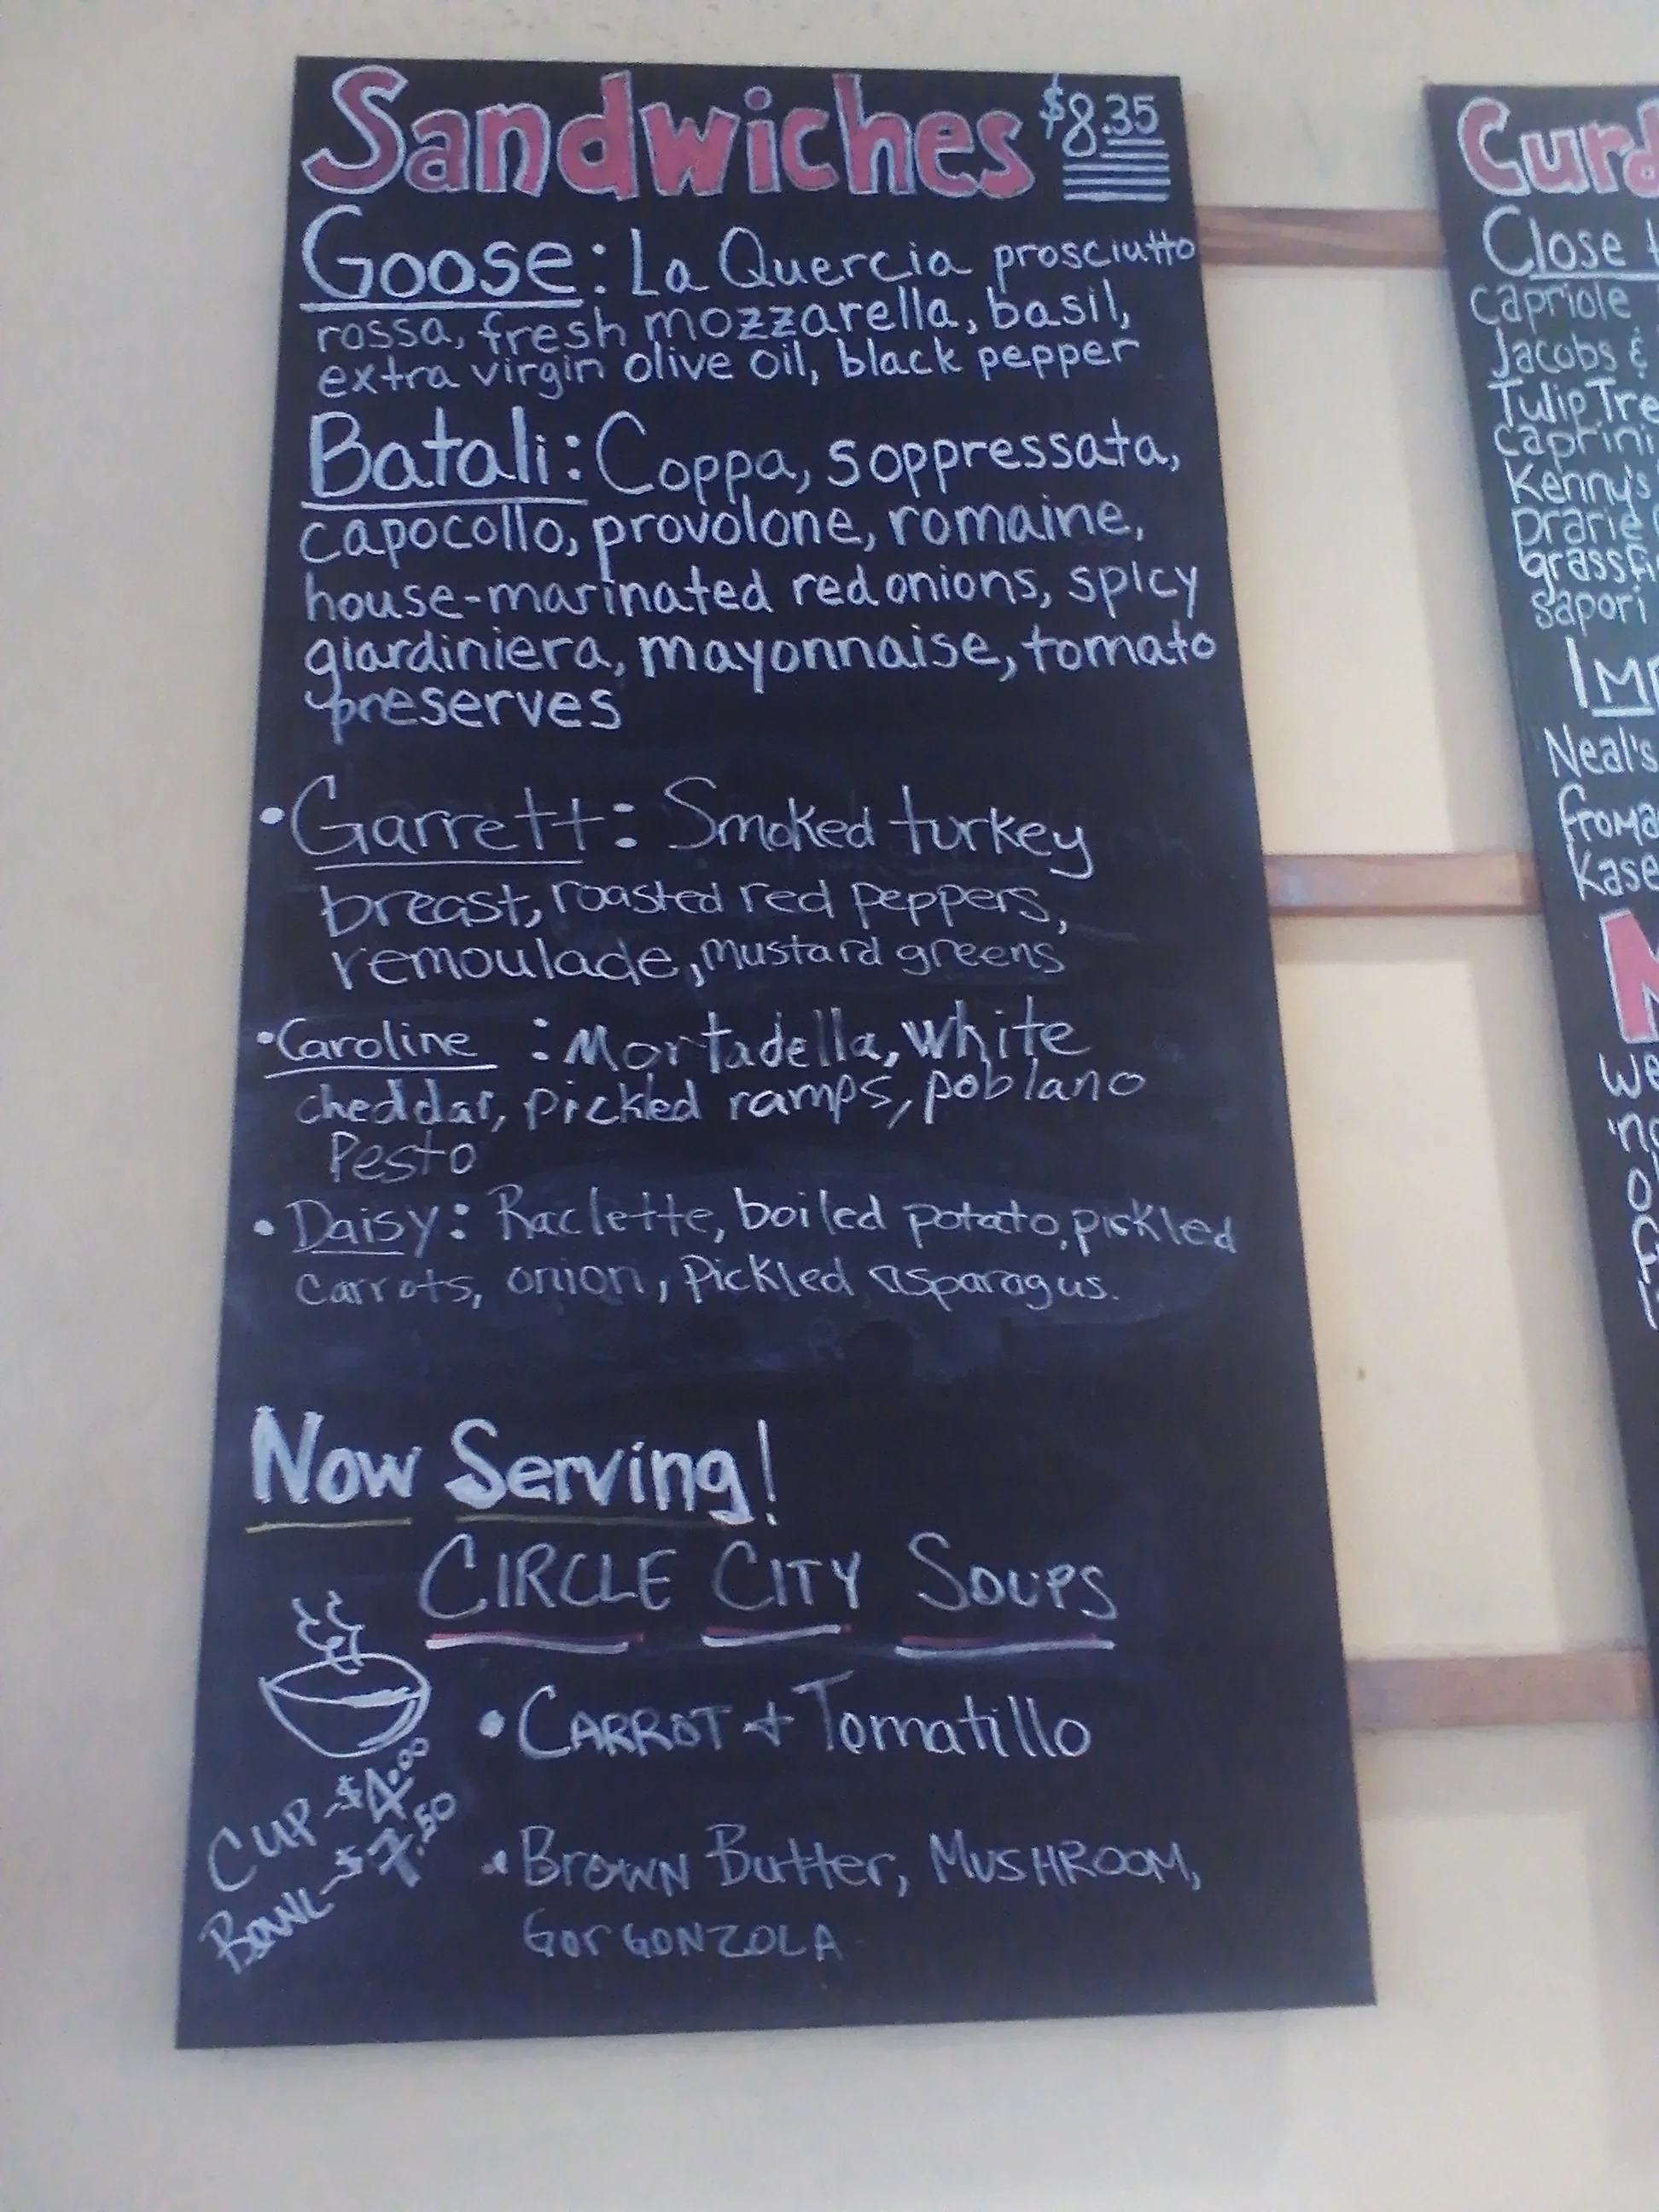 Sandwiches $8.35
Goose: La Quercia prosciutto
rossa, fresh mozzarella, basil,
extra virgin olive oil, black pepper
Batali: Coppa, soppressata,
capocollo, provolone, romaine,
house-marinated red onions, spicy
giardiniera, mayonnaise, tomato
preserves
• Garrett: Smoked turkey
breast, roasted red peppers,
remoulade, mustard greens
• Caroline : Mortadella, white
cheddar, pickled ramps, poblano
Pesto
• Daisy: Raclette, boiled potato, pickled
carrots, onion, Pickled asparagus.
Now Serving!
CIRCLE CITY SOUPS
• CARROT + Tomatillo
CUP - $4.00
BOWL - $7.50
• BROWN Butter, MUSHROOM,
GorGONZOLA
Curd
Close t
capriole
Jacobs &
Tulip Tre
caprini
Kenny's
prarie
grassfi
sapori
IMP
Neal's
froma
Kase
N
we